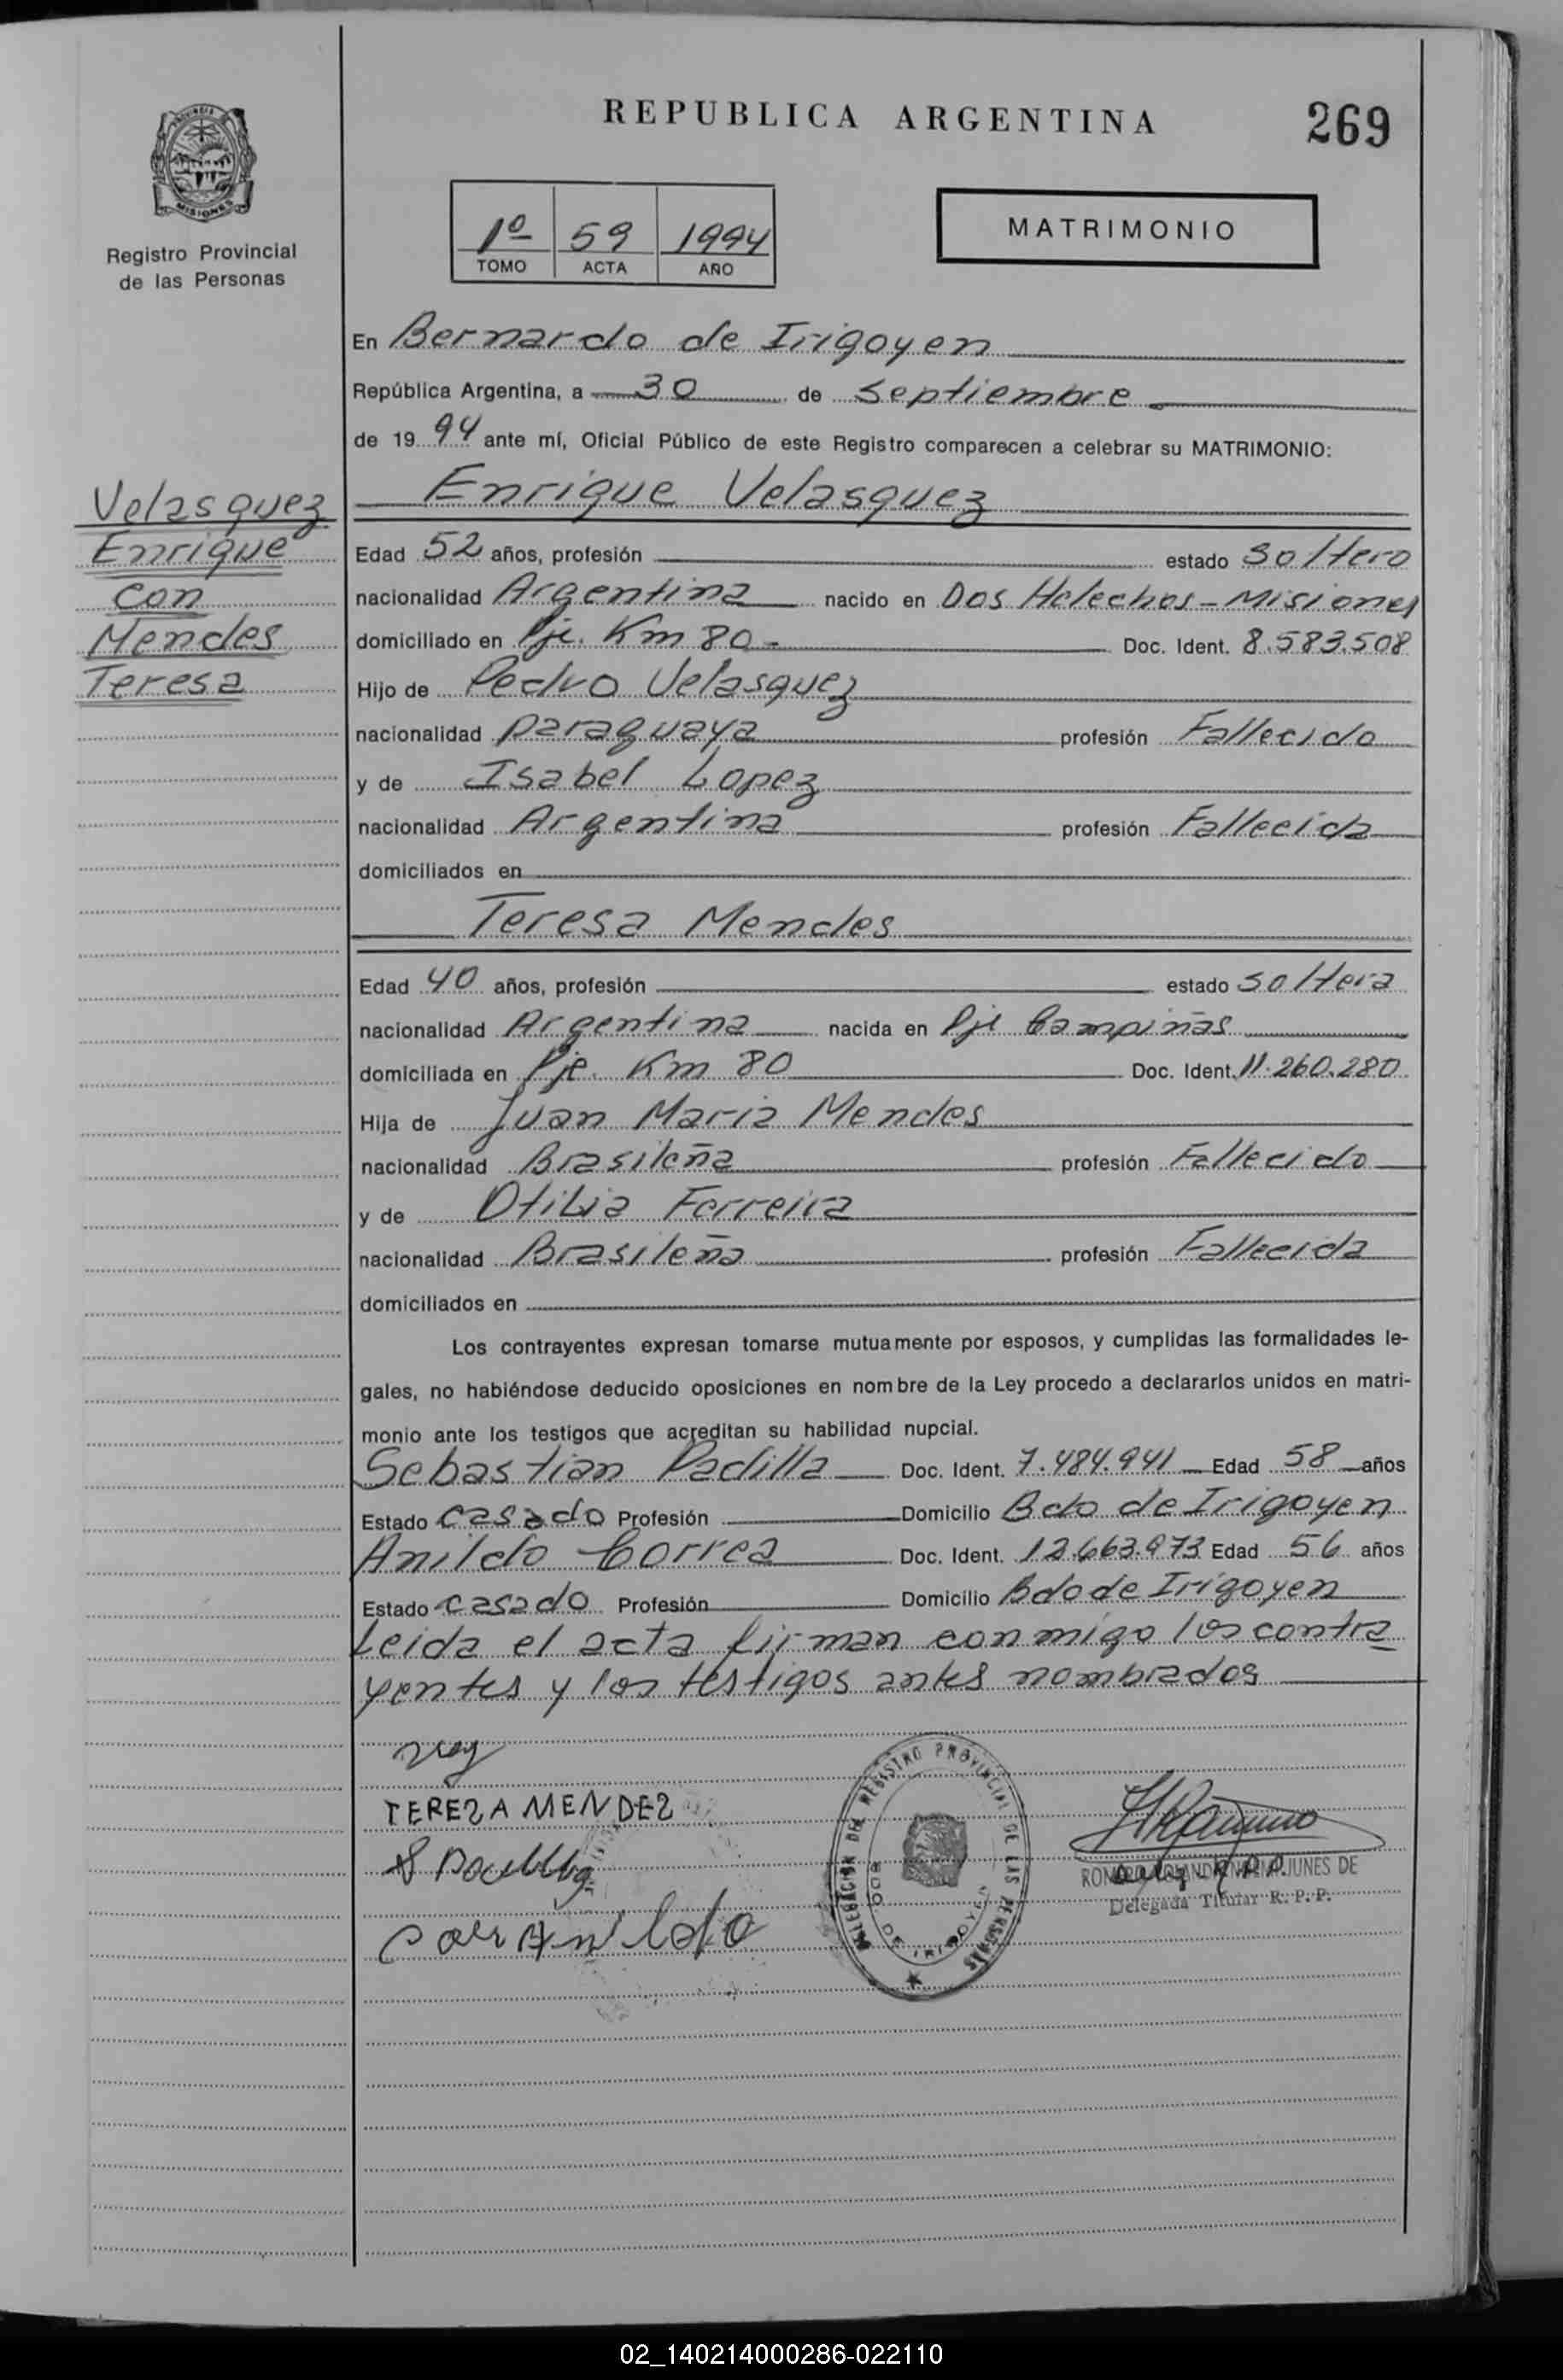 REPUBLICA ARGENTINA
269
MISIONES
Registro Provincial
de las Personas
1º 59 1994
TOMO ACTA AÑO
MATRIMONIO
En Bernardo de Irigoyen
República Argentina, a 30 de Septiembre
de 19 94 ante mí, Oficial Público de este Registro comparecen a celebrar su MATRIMONIO:
Velasquez
Enrique
con
Mendes
Teresa
Enrique Velasquez
Edad 52 años, profesión estado soltero
nacionalidad Argentina nacido en Dos Helechos - Misiones
domiciliado en Pje. Km 80 - Doc. Ident. 8.583.508
Hijo de Pedro Velasquez
nacionalidad paraguaya profesión Fallecido
y de Isabel Lopez
nacionalidad Argentina profesión Fallecida
domiciliados en
Teresa Mendes
Edad 40 años, profesión estado soltera
nacionalidad Argentina nacida en Pje Campiñas
domiciliada en Pje. Km 80 Doc. Ident. 11.260.280
Hija de Juan Maria Mendes
nacionalidad Brasileña profesión Fallecido
y de Otilia Ferreira
nacionalidad Brasileña profesión Fallecida
domiciliados en
Los contrayentes expresan tomarse mutuamente por esposos, y cumplidas las formalidades le-
gales, no habiéndose deducido oposiciones en nombre de la Ley procedo a declararlos unidos en matri-
monio ante los testigos que acreditan su habilidad nupcial.
Sebastian Padilla Doc. Ident. 7.484.941 Edad 58 años
Estado casado Profesión Domicilio Bdo de Irigoyen
Anildo Correa Doc. Ident. 12.663.973 Edad 56 años
Estado casado Profesión Domicilio Bdo de Irigoyen
Leida el acta firman conmigo los contra
yentes y los testigos antes nombrados
TEREZA MENDEZ
DELEGACION DEL REGISTRO PROVINCIAL DE LAS PERSONAS
BDO DE IRIGOYEN
JUNES DE
Delegada Titular R. P. P.
02_140214000286-022110